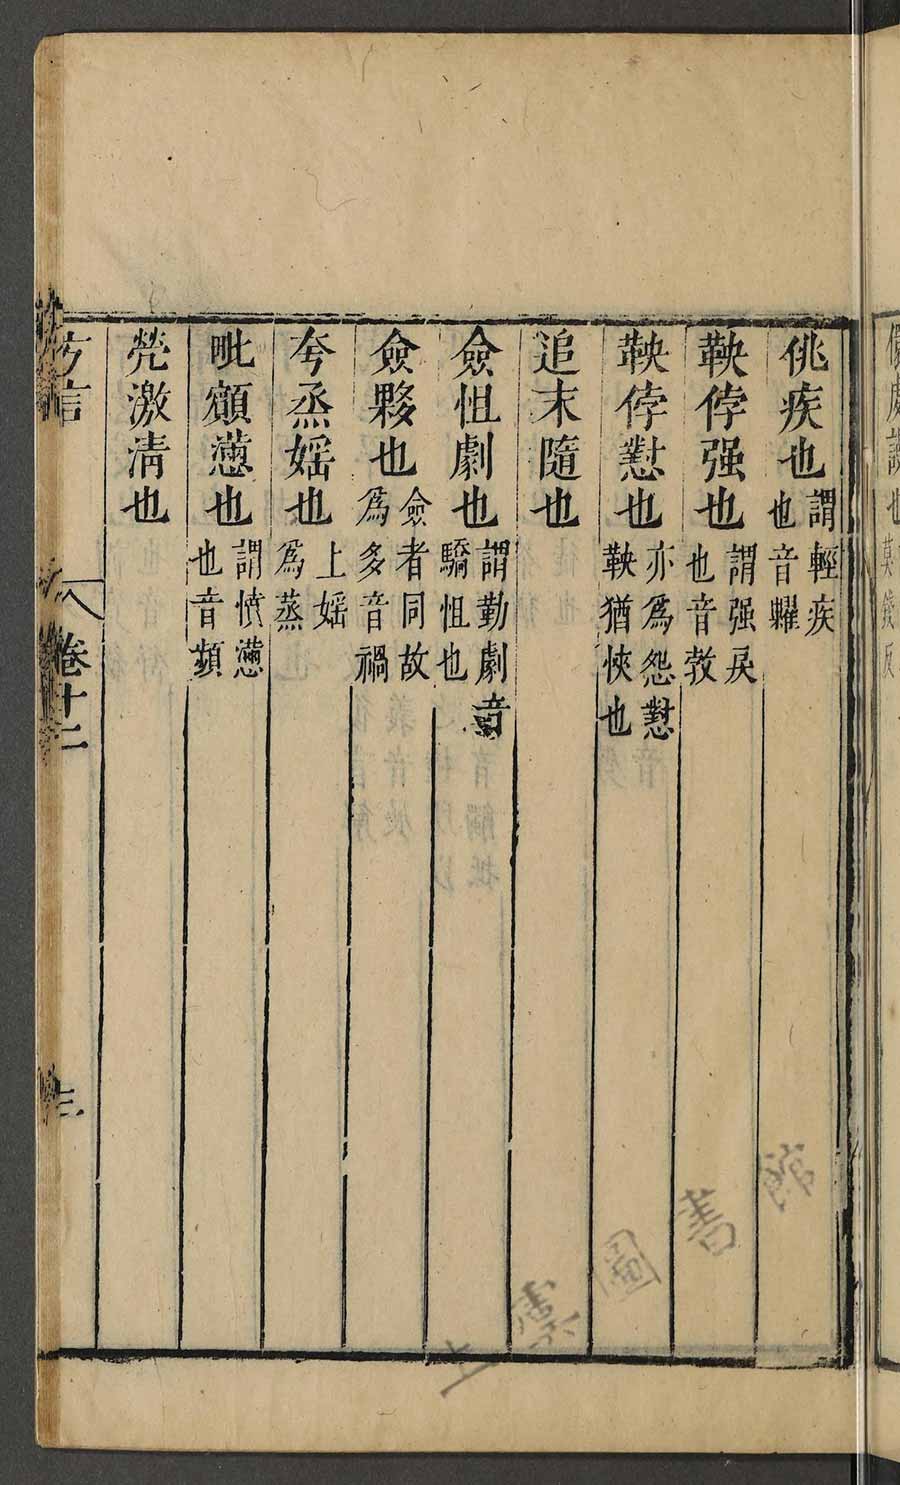 佻疾也謂輕疾也音糶
鞅侼强也謂强戾也音教
鞅侼懟也亦爲怨懟鞅猶怏也
追末隨也
僉怚劇也謂勤劇音驕怚也
僉夥也僉者同故爲多音禍
夸烝婬也上婬爲蒸
毗顩懣也謂憤懣也音頻
激清也
方言 卷十二 三
上虞圖書館